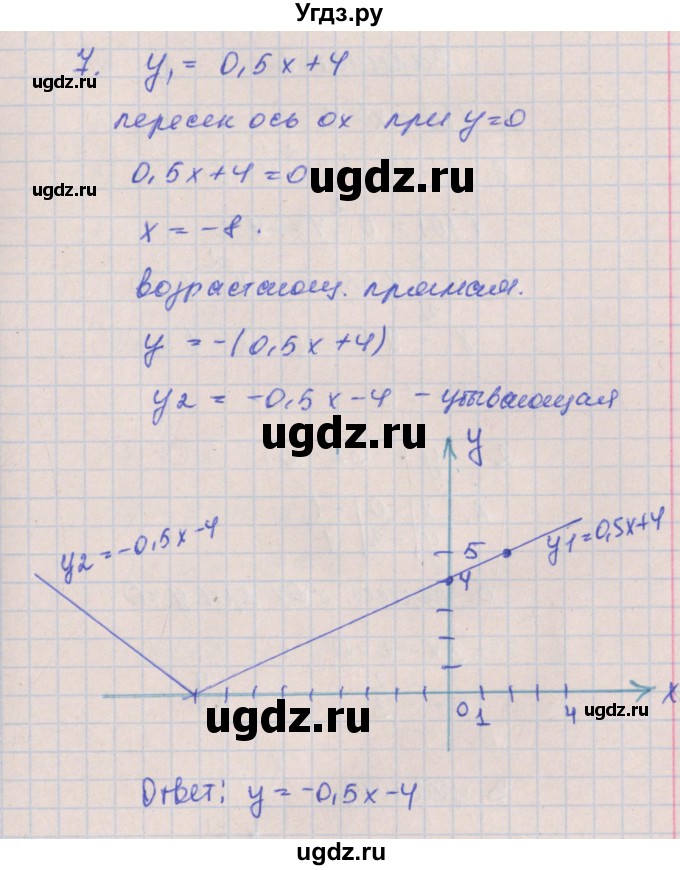 Угдз.ру
7. y₁ = 0,5x+4
ugdz.ru
пересек ось ox при y=0
0,5x+4=0
ugdz.ru
ugdz.ru
x = -8.
возрастающ. прямая.
y = -(0,5x+4)
y2 = -0,5x-4 - убывающая
ugdz.ru
y
y2=-0,5x-4
y1=0,5x+4
5
4
0 1 4 x
ugdz.ru
ugdz.ru
Ответ: y=-0,5x-4
ugdz.ru